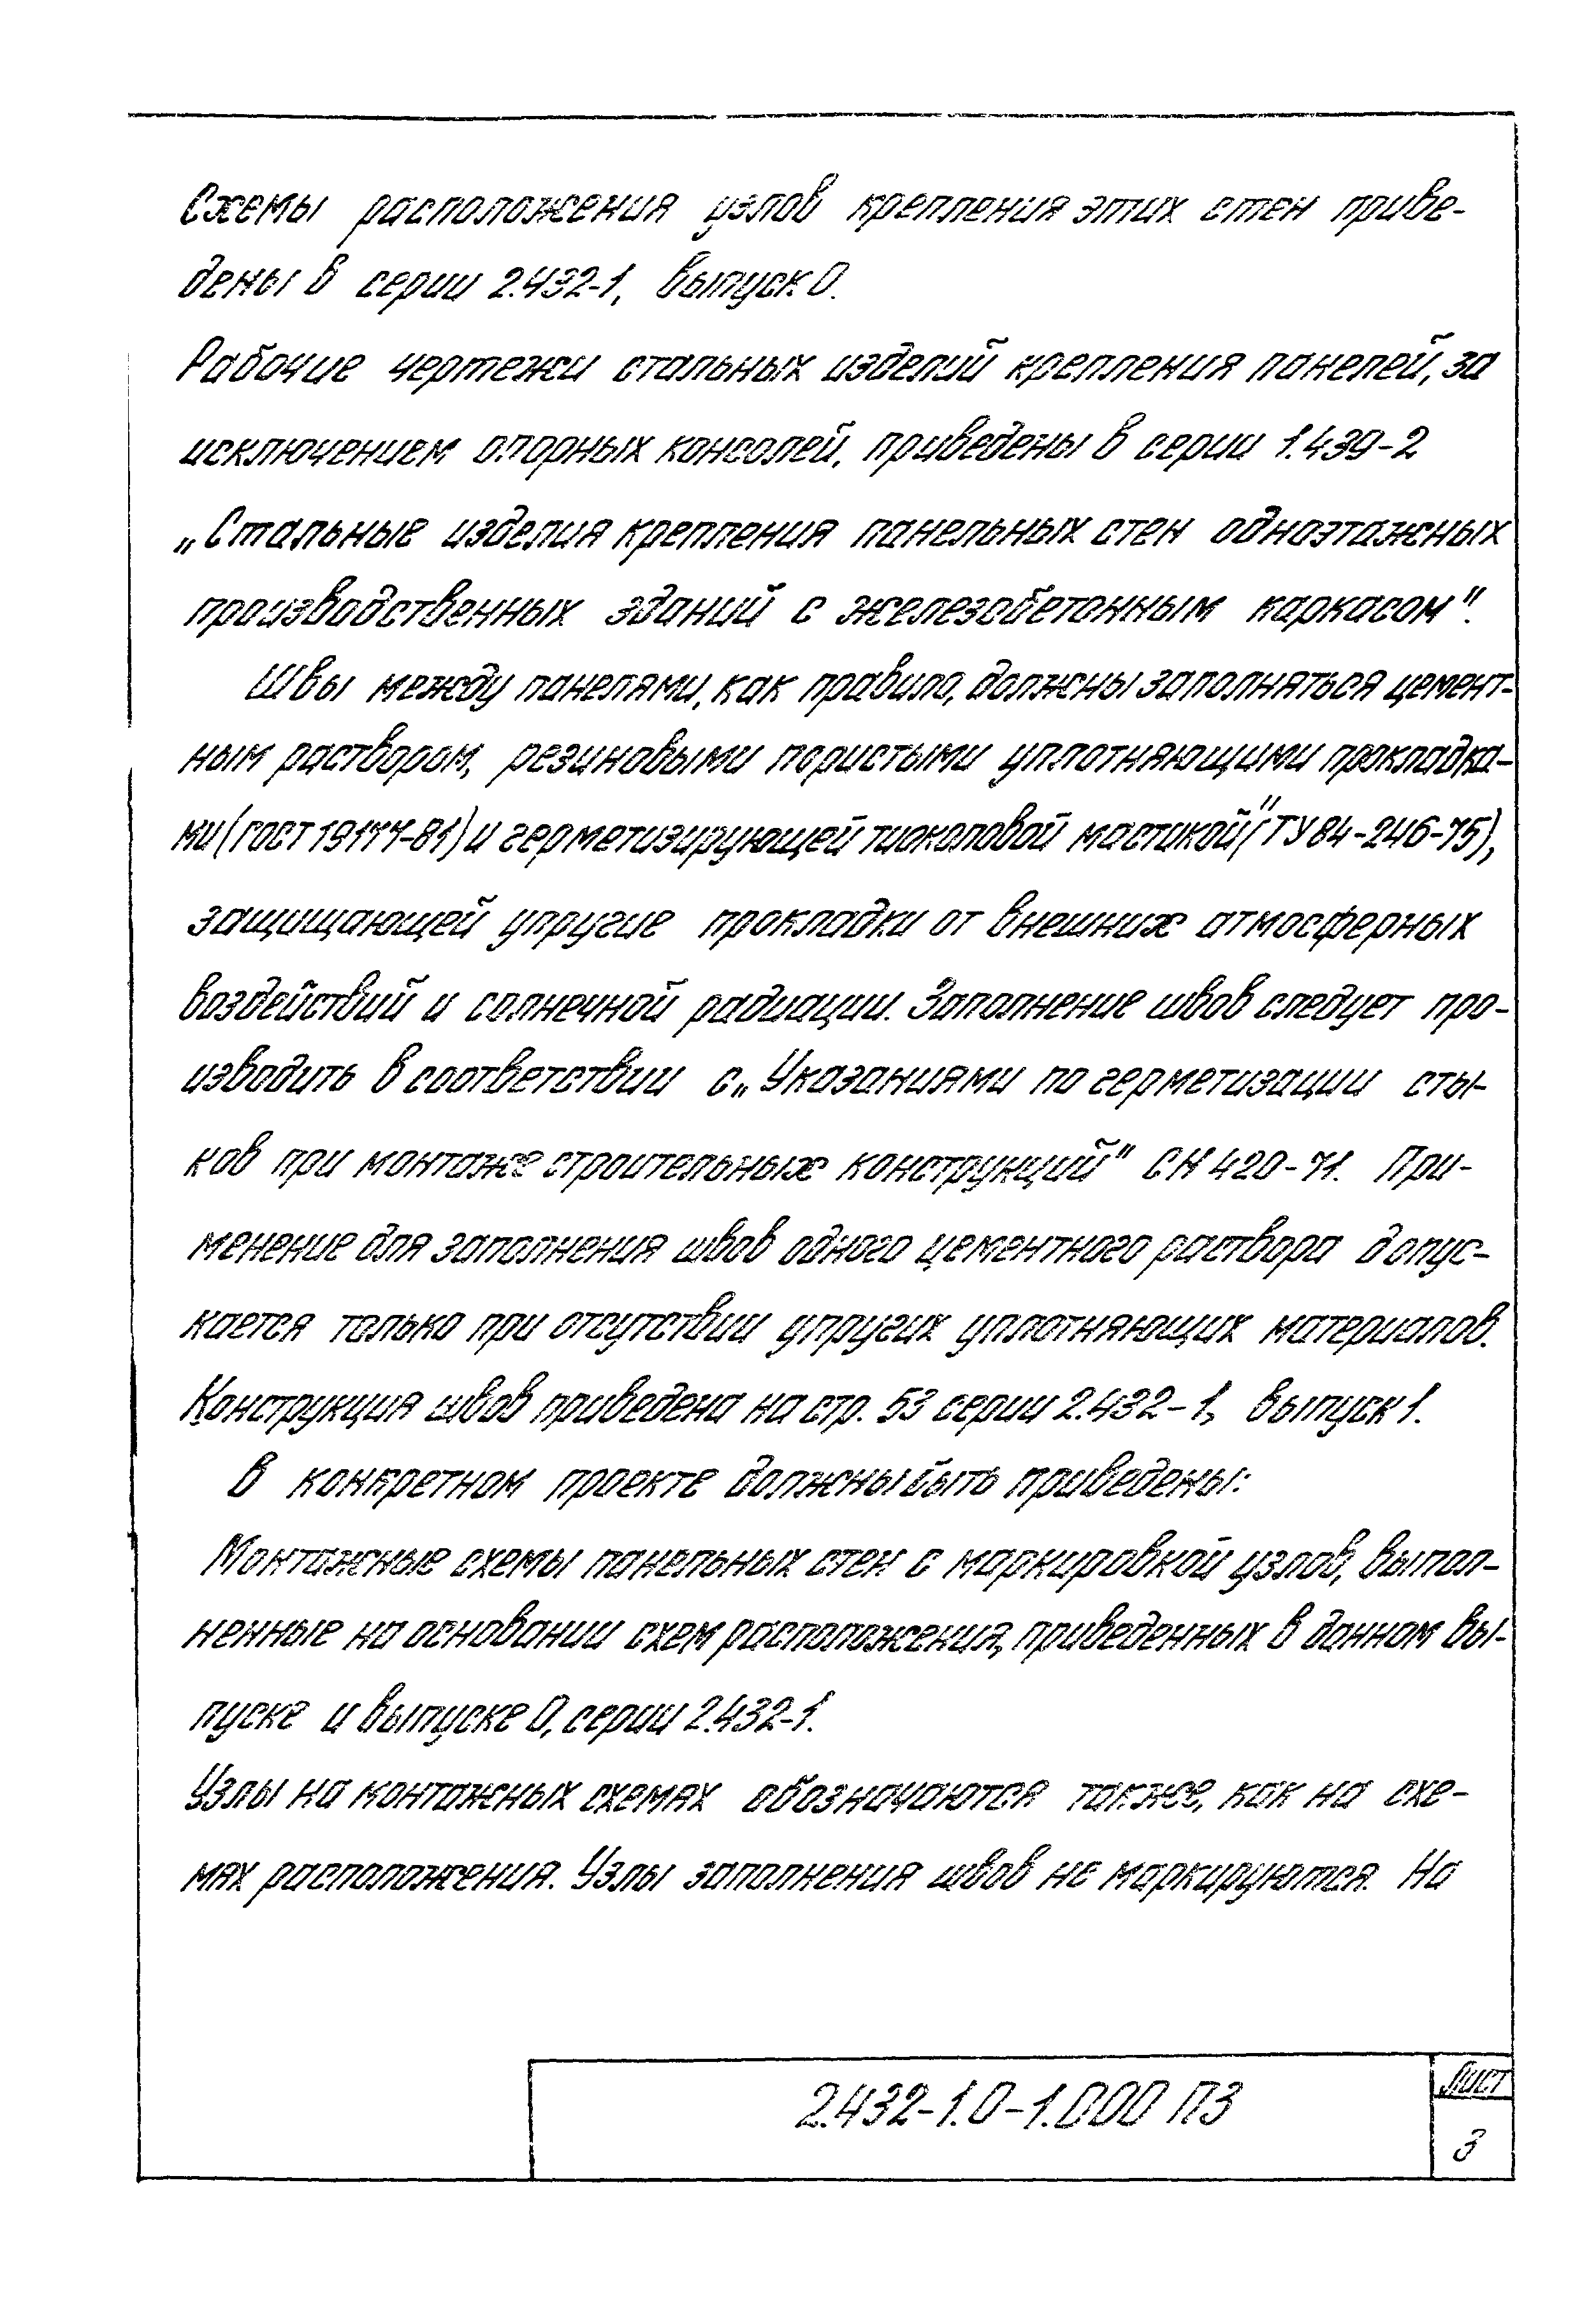 Схемы расположения узлов крепления этих стен приве-
дены в серии 2.432-1, выпуск 0.
Рабочие чертежи стальных изделий крепления панелей, за
исключением опорных консолей, приведены в серии 1.439-2
„Стальные изделия крепления панельных стен одноэтажных
производственных зданий с железобетонным каркасом".
Швы между панелями, как правило, должны заполняться цемент-
ным раствором, резиновыми пористыми уплотняющими прокладка-
ми (ГОСТ 19177-81) и герметизирующей тиоколовой мастикой "(ТУ 84-246-75),
защищающей упругие прокладки от внешних атмосферных
воздействий и солнечной радиации. Заполнение швов следует про-
изводить в соответствии с „Указаниями по герметизации сты-
ков при монтаже строительных конструкций" СН 420-71. При-
менение для заполнения швов одного цементного раствора допус-
кается только при отсутствии упругих уплотняющих материалов.
Конструкция швов приведена на стр. 53 серии 2.432-1, выпуск 1.
В конкретном проекте должны быть приведены:
Монтажные схемы панельных стен с маркировкой узлов, выпол-
ненные на основании схем расположения, приведенных в данном вы-
пуске и выпуске 0, серии 2.432-1.
Узлы на монтажных схемах обозначаются также, как на схе-
мах расположения. Узлы заполнения швов не маркируются. На
2.432-1.0-1.000 ПЗ
Лист
3